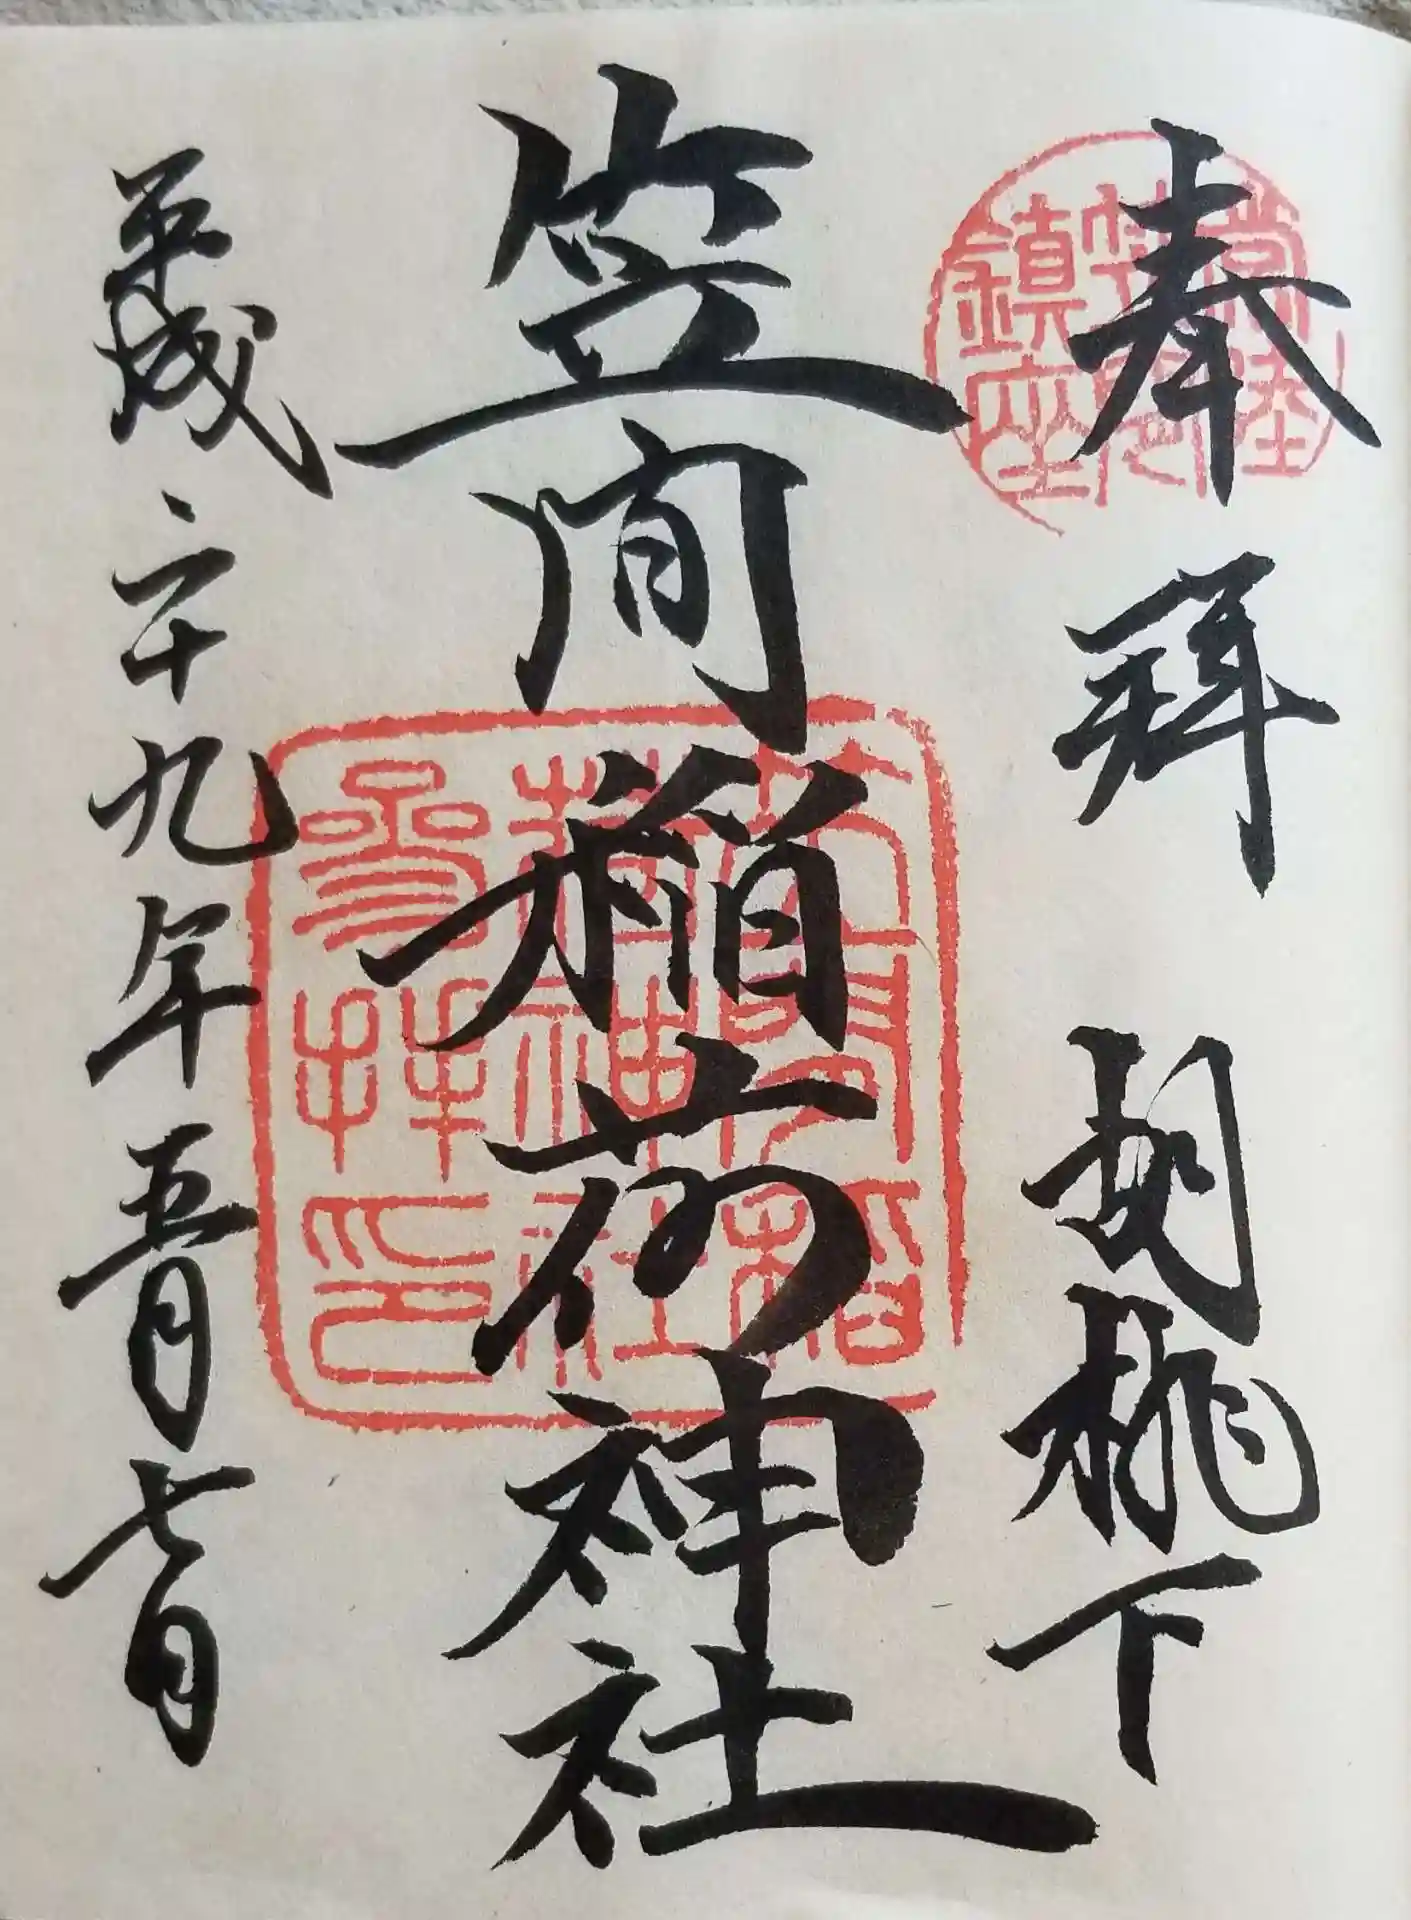 奉拝 胡桃下
常陸
笠間
鎮座
笠間稲荷神社
笠間稲
荷神社
参拝印
平成二十九年五月七日